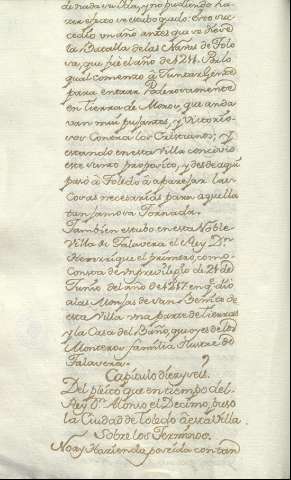 de nada valia, y no pudiendo ha-
zer efecto se estubo quedo. Esto suc-
cedio un año antes que se diese
la Batalla de las Navas de Tolo-
sa, que fue el año de 1211. Para lo
qual comenzo à Juntar Gente
para entrar Poderosamente
en tierra de Moros, que anda-
van muy pujantes, y Victorio-
sos Contra los Cristianos; y
estando en esta Villa concivio
este santo proposito, y desde aqui
pasò à Toledo à aparejar las
Cosas necesarias para aquella
tan famosa Jornada.
Tambien estubo en esta Noble
Villa de Talavera el Rey Dn
Henrrique el primero, como
Consta de un privilegio de 21 de
Junio del año de 1217 en q dio
a las Monjas de San Benito de
esta Villa una parte de tierras
y la Casa del Baño, que oy es de los
Monteros familia Ilustre de
Talavera.
Capitulo diez y seis.
Del pleito que en tiempo del
Rey Dn Alonso el Decimo, puso
la Ciudad de Toledo à esta Villa
sobre los Terminos.
No ay Hazienda poseida con tan